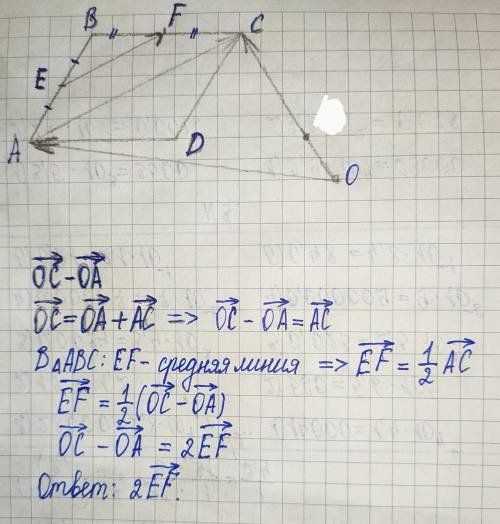 B F C
E
A D
O
OC - OA
OC = OA + AC => OC - OA = AC
В △ABC: EF - средняя линия => EF = 1/2 AC
EF = 1/2 (OC - OA)
OC - OA = 2EF
Ответ: 2EF.